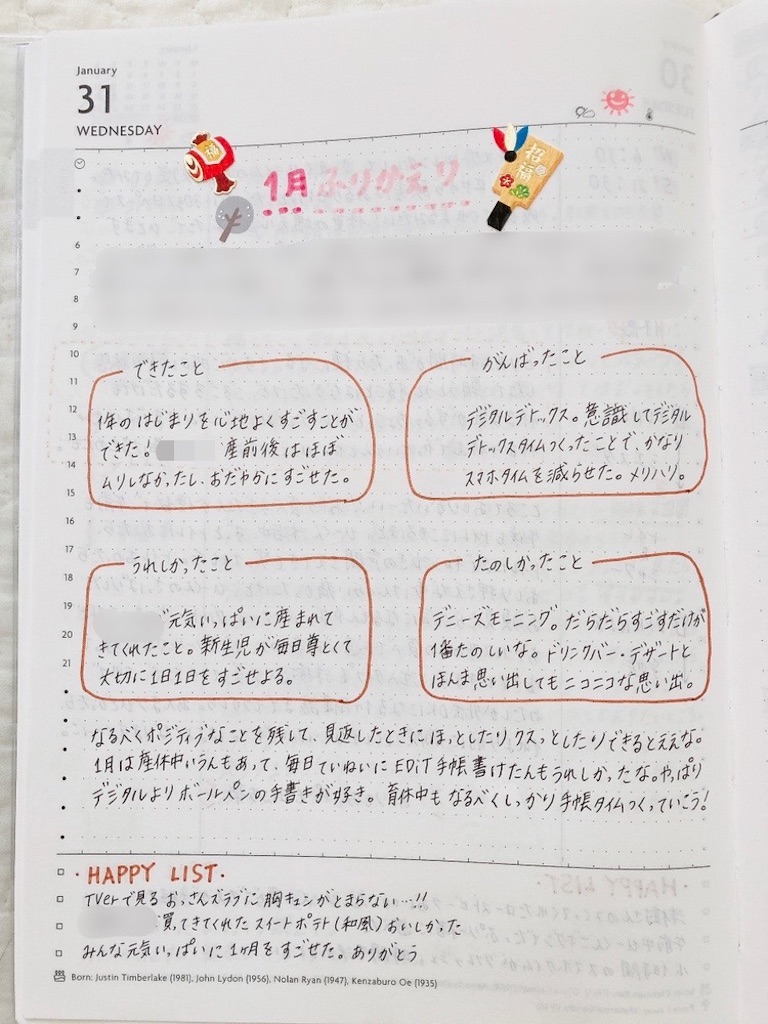 January
31
WEDNESDAY
招福
1月ふりかえり
6
7
8
9
10
11
12
13
14
15
16
17
18
19
20
21
できたこと
1年のはじまりを心地よくすごすことが
できた! 産前後はほぼ
ムリしなかったし、おだやかにすごせた。
がんばったこと
デジタルデトックス。意識してデジタル
デトックスタイムつくったことで、かなり
スマホタイムを減らせた。メリハリ。
うれしかったこと
元気いっぱいに産まれて
きてくれたこと。新生児が毎日尊とくて
大切に1日1日をすごせよる。
たのしかったこと
デニーズモーニング。だらだらすごすだけが
1番たのしいな。ドリンクバー・デザートと
ほんま思い出してもニコニコな思い出。
なるべくポジティブなことを残して、見返したときにほっとしたりクスっとしたりできるとええな。
1月は産休中いうんもあって、毎日ていねいにEDiT手帳書けたんもうれしかったな。やっぱり
デジタルよりボールペンの手書きが好き。育休中もなるべくしっかり手帳タイムつくっていこう!
・HAPPY LIST・
TVerで見るおっさんズラブに胸キュンがとまらない…!!
買ってきてくれたスイートポテト(和風)おいしかった
みんな元気いっぱいに1ヶ月をすごせた。ありがとう
Born: Justin Timberlake (1981), John Lydon (1956), Nolan Ryan (1947), Kenzaburo Oe (1935)